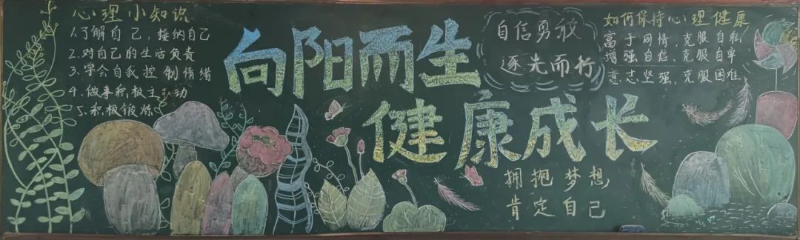 心理小知识
1.了解自己，接纳自己
2.对自己的生活负责
3.学会自我控制情绪
4.做事积极主动
5.积极锻炼
向阳而生
健康成长
自信勇敢
逐光而行
如何保持心理健康
富于同情，克服自私
增强自信，克服自卑
意志坚强，克服困难
拥抱梦想
肯定自己